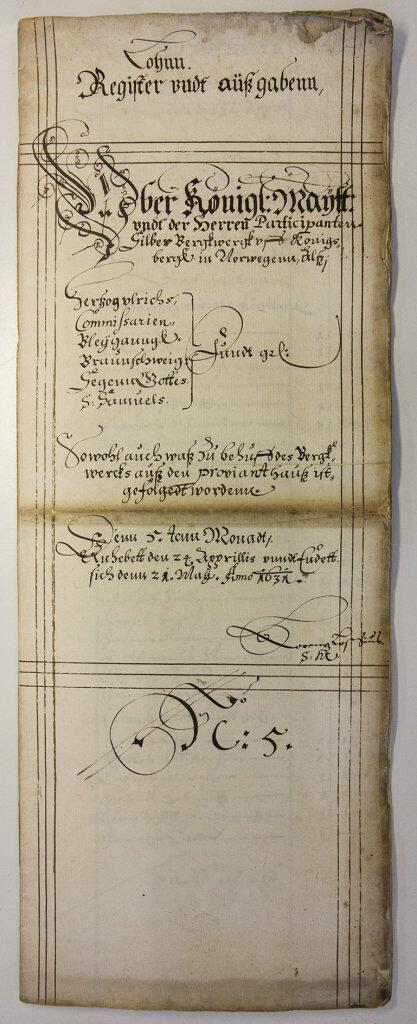 Lohnn.
Register vndt außgabenn,
Vber Königl: Maÿtt:
vndt der Herren Participanten
Silber Bergkwergk vf Königs-
bergk in Norwegenn, Alß,
Hertzog vlrichs,
Commissarien,
Bleyganngk.
Braunschweig
Segenn Gottes
S: Samuels.
Fundt gr:
Sowohl auch waß zu behuf des Bergk-
wercks auß den proviant hauß ist
gefolgedt wordenn.
Denn 5. tenn Monadt,
Anhebett den 24 Apprillis vnndt Endett
sich denn 21. May. Anno 1631.
Lorentz
No: 5.